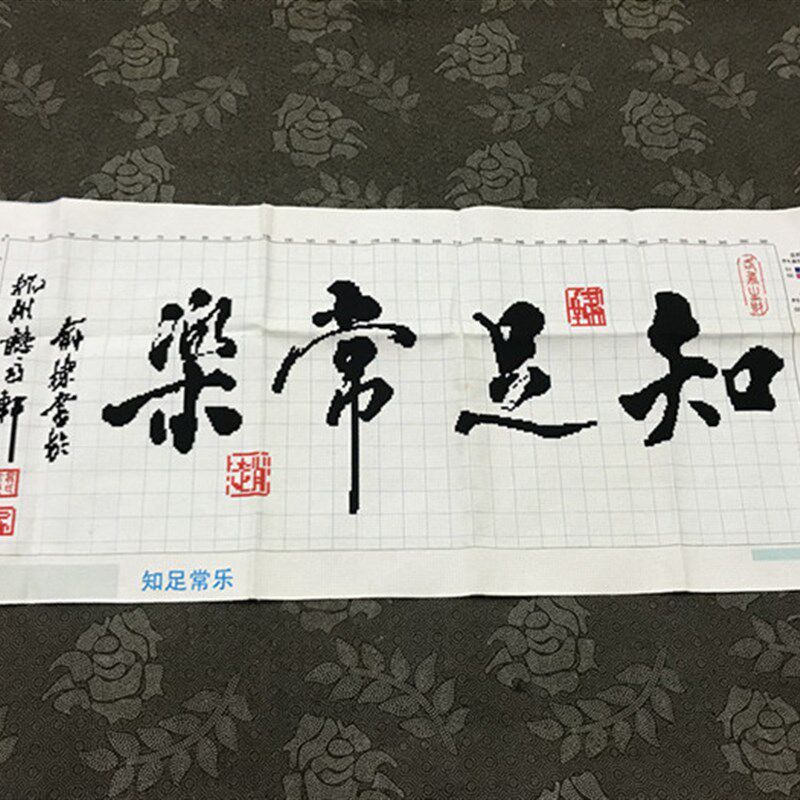 知足常樂
書於
杭州聽雨軒
知足常乐